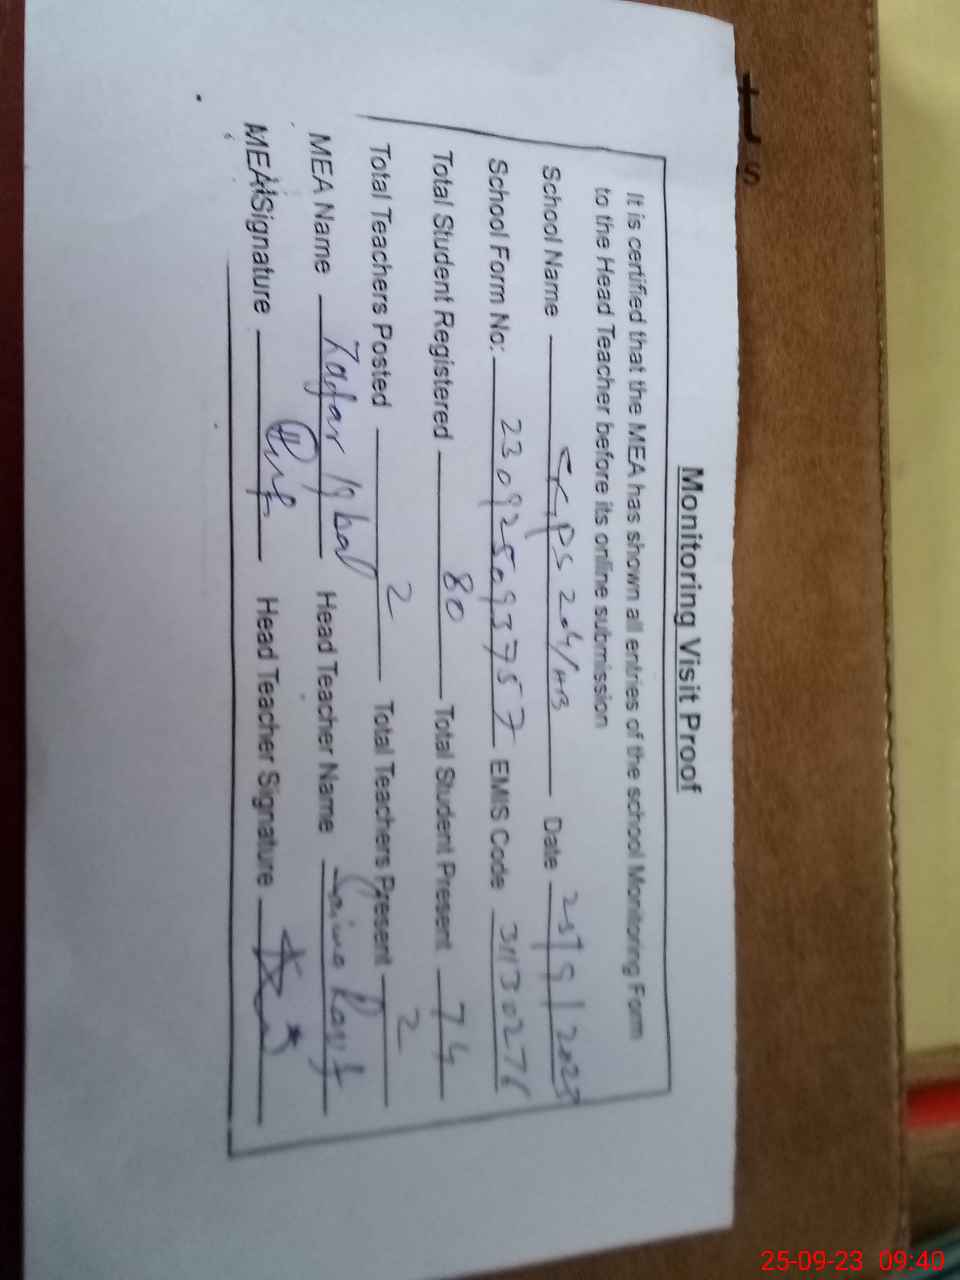 Monitoring Visit Proof
It is certified that the MEA has shown all entries of the school Monitoring Form
to the Head Teacher before its online submission
School Name PS 204/RB Date 25/9/2023
School Form No: 230925093757 EMIS Code 31130276
Total Student Registered 80 Total Student Present 74
Total Teachers Posted 2 Total Teachers Present 2
MEA Name Zafar Iqbal Head Teacher Name Saima Rauf
MEA Signature Head Teacher Signature
25-09-23 09:40